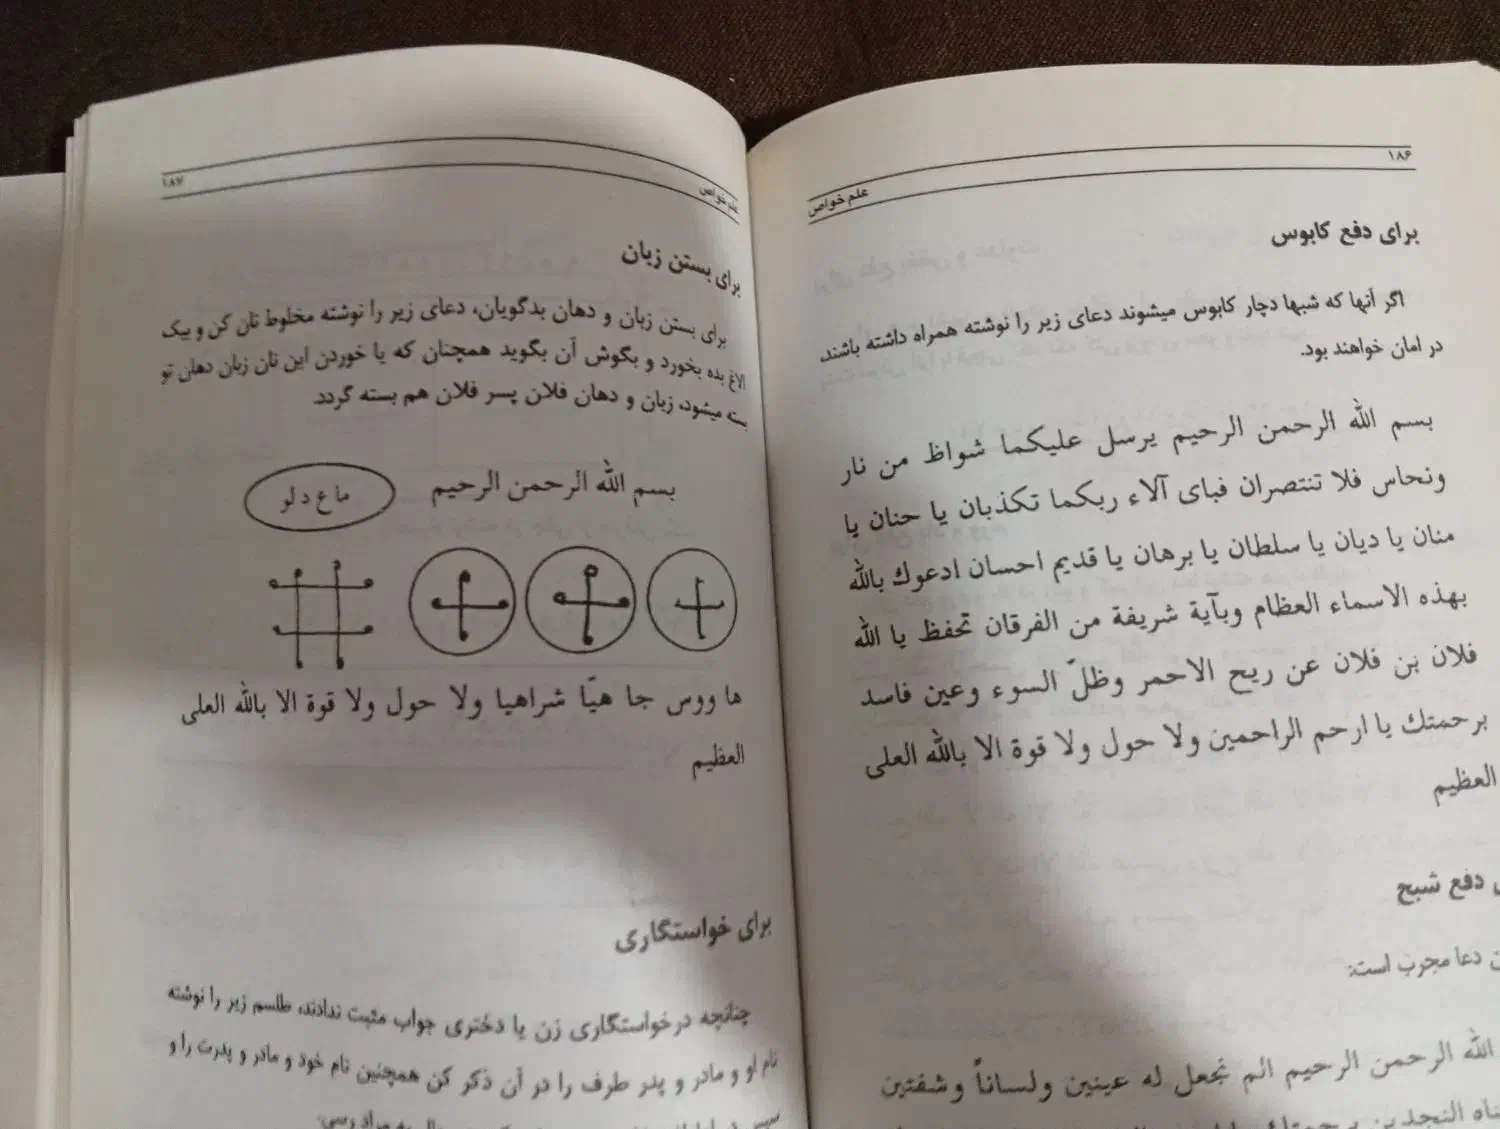 ۱۸۶
علم خواص
برای دفع کابوس
اگر آنها که شبها دچار کابوس میشوند دعای زیر را نوشته همراه داشته باشند،
در امان خواهند بود.
بسم الله الرحمن الرحیم یرسل علیکما شواظ من نار
ونحاس فلا تنتصران فبای آلاء ربکما تکذبان یا حنان یا
منان یا دیان یا سلطان یا برهان یا قدیم احسان ادعوك بالله
بهذه الاسماء العظام وبآیة شریفة من الفرقان تحفظ یا الله
فلان بن فلان عن ریح الاحمر وظلّ السوء وعین فاسد
برحمتك یا ارحم الراحمین ولا حول ولا قوة الا بالله العلی
العظیم
دفع شبح
دعا مجرب است:
الله الرحمن الرحیم الم نجعل له عینین ولساناً وشفتین
النجدین
علم خواص
۱۸۷
برای بستن زبان
برای بستن زبان و دهان بدگویان، دعای زیر را نوشته مخلوط نان کن و بیک
الاغ بده بخورد و بگوش آن بگوید همچنان که با خوردن این نان زبان دهان تو
بسته میشود، زبان و دهان فلان پسر فلان هم بسته گردد.
بسم الله الرحمن الرحیم
ما ع د لو
ها ووس جا هیّا شراهیا ولا حول ولا قوة الا بالله العلی
العظیم
برای خواستگاری
چنانچه در خواستگاری زن یا دختری جواب مثبت ندادند، طلسم زیر را نوشته
نام او و مادر و پدر طرف را در آن ذکر کن همچنین نام خود و مادر و پدرت را و
سپس در
به مراد رسی.